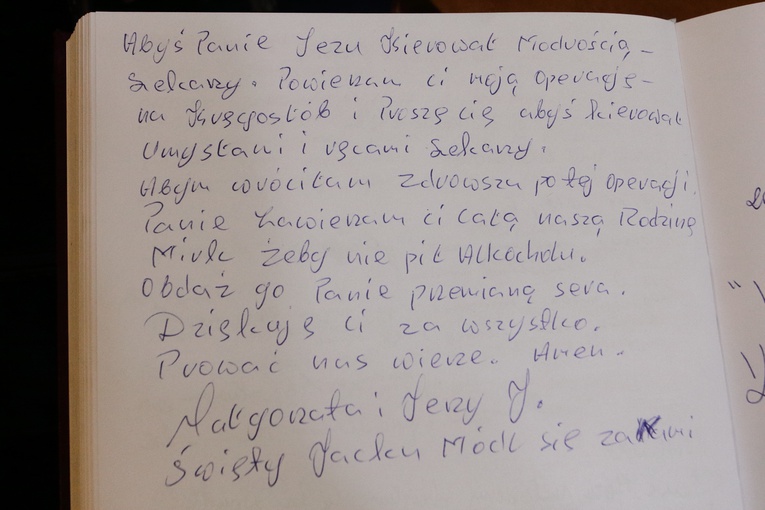 Abyś Panie Jezu Kierował Mądrością
Lekarzy. Powierzam ci moją operację
na Kręgosłób i Proszę cię abyś kierował
Umysłami i ręcami Lekarzy.
Abym wróciłam zdrowsza po tej operacji.
Panie Zawierzam ci całą naszą Rodzinę
żeby nie pił Alkocholu.
Obdaż go Panie przemianą serca.
Dziękuję ci za wszystko.
Prować nas wierze. Amen.
Małgorzata i Jerzy J.
Święty Jacku Módl się za nami